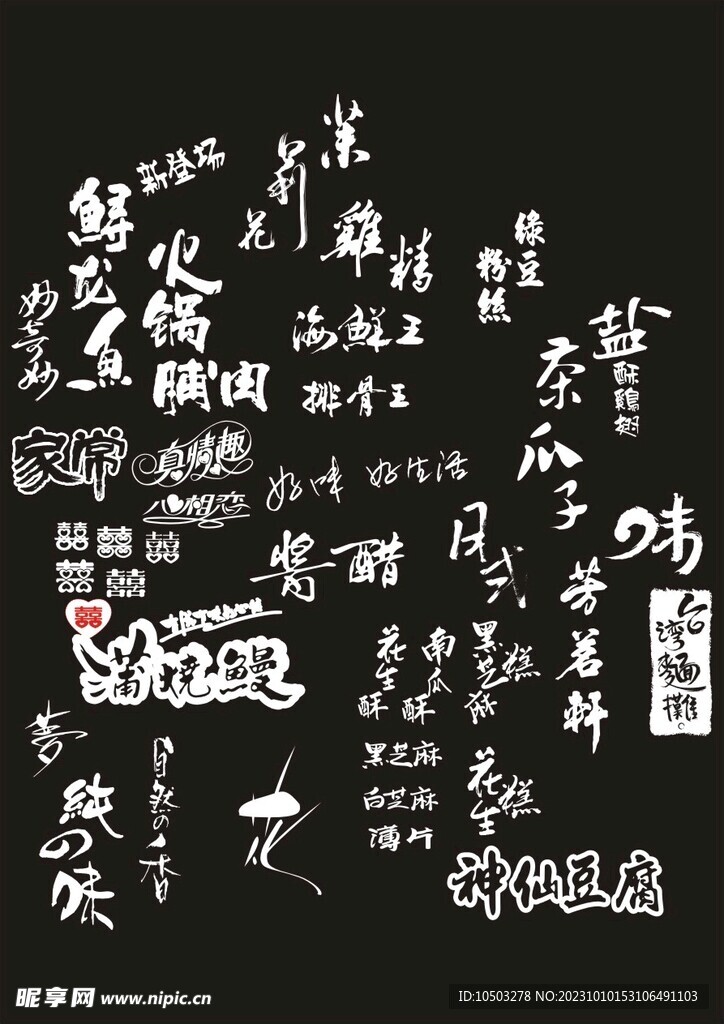 茉
莉
花
新登场
鲟龙鱼
火锅
脯肉
妙奇妙
雞精
海鮮王
排骨王
綠豆
粉絲
盐
酥鷄翅
茶瓜子
家常
真情趣
心相恋
好味 好生活
醬醋
日式
味
囍囍囍
囍囍
囍
蒲燒鰻
芳茗軒
台灣麵攤。
花生酥
南瓜酥
黑芝麻糕
黑芝麻
白芝麻
薄片
花生糕
夢
純の味
自然の香
花
神仙豆腐
昵享网 www.nipic.cn
ID:10503278 NO:20231010153106491103